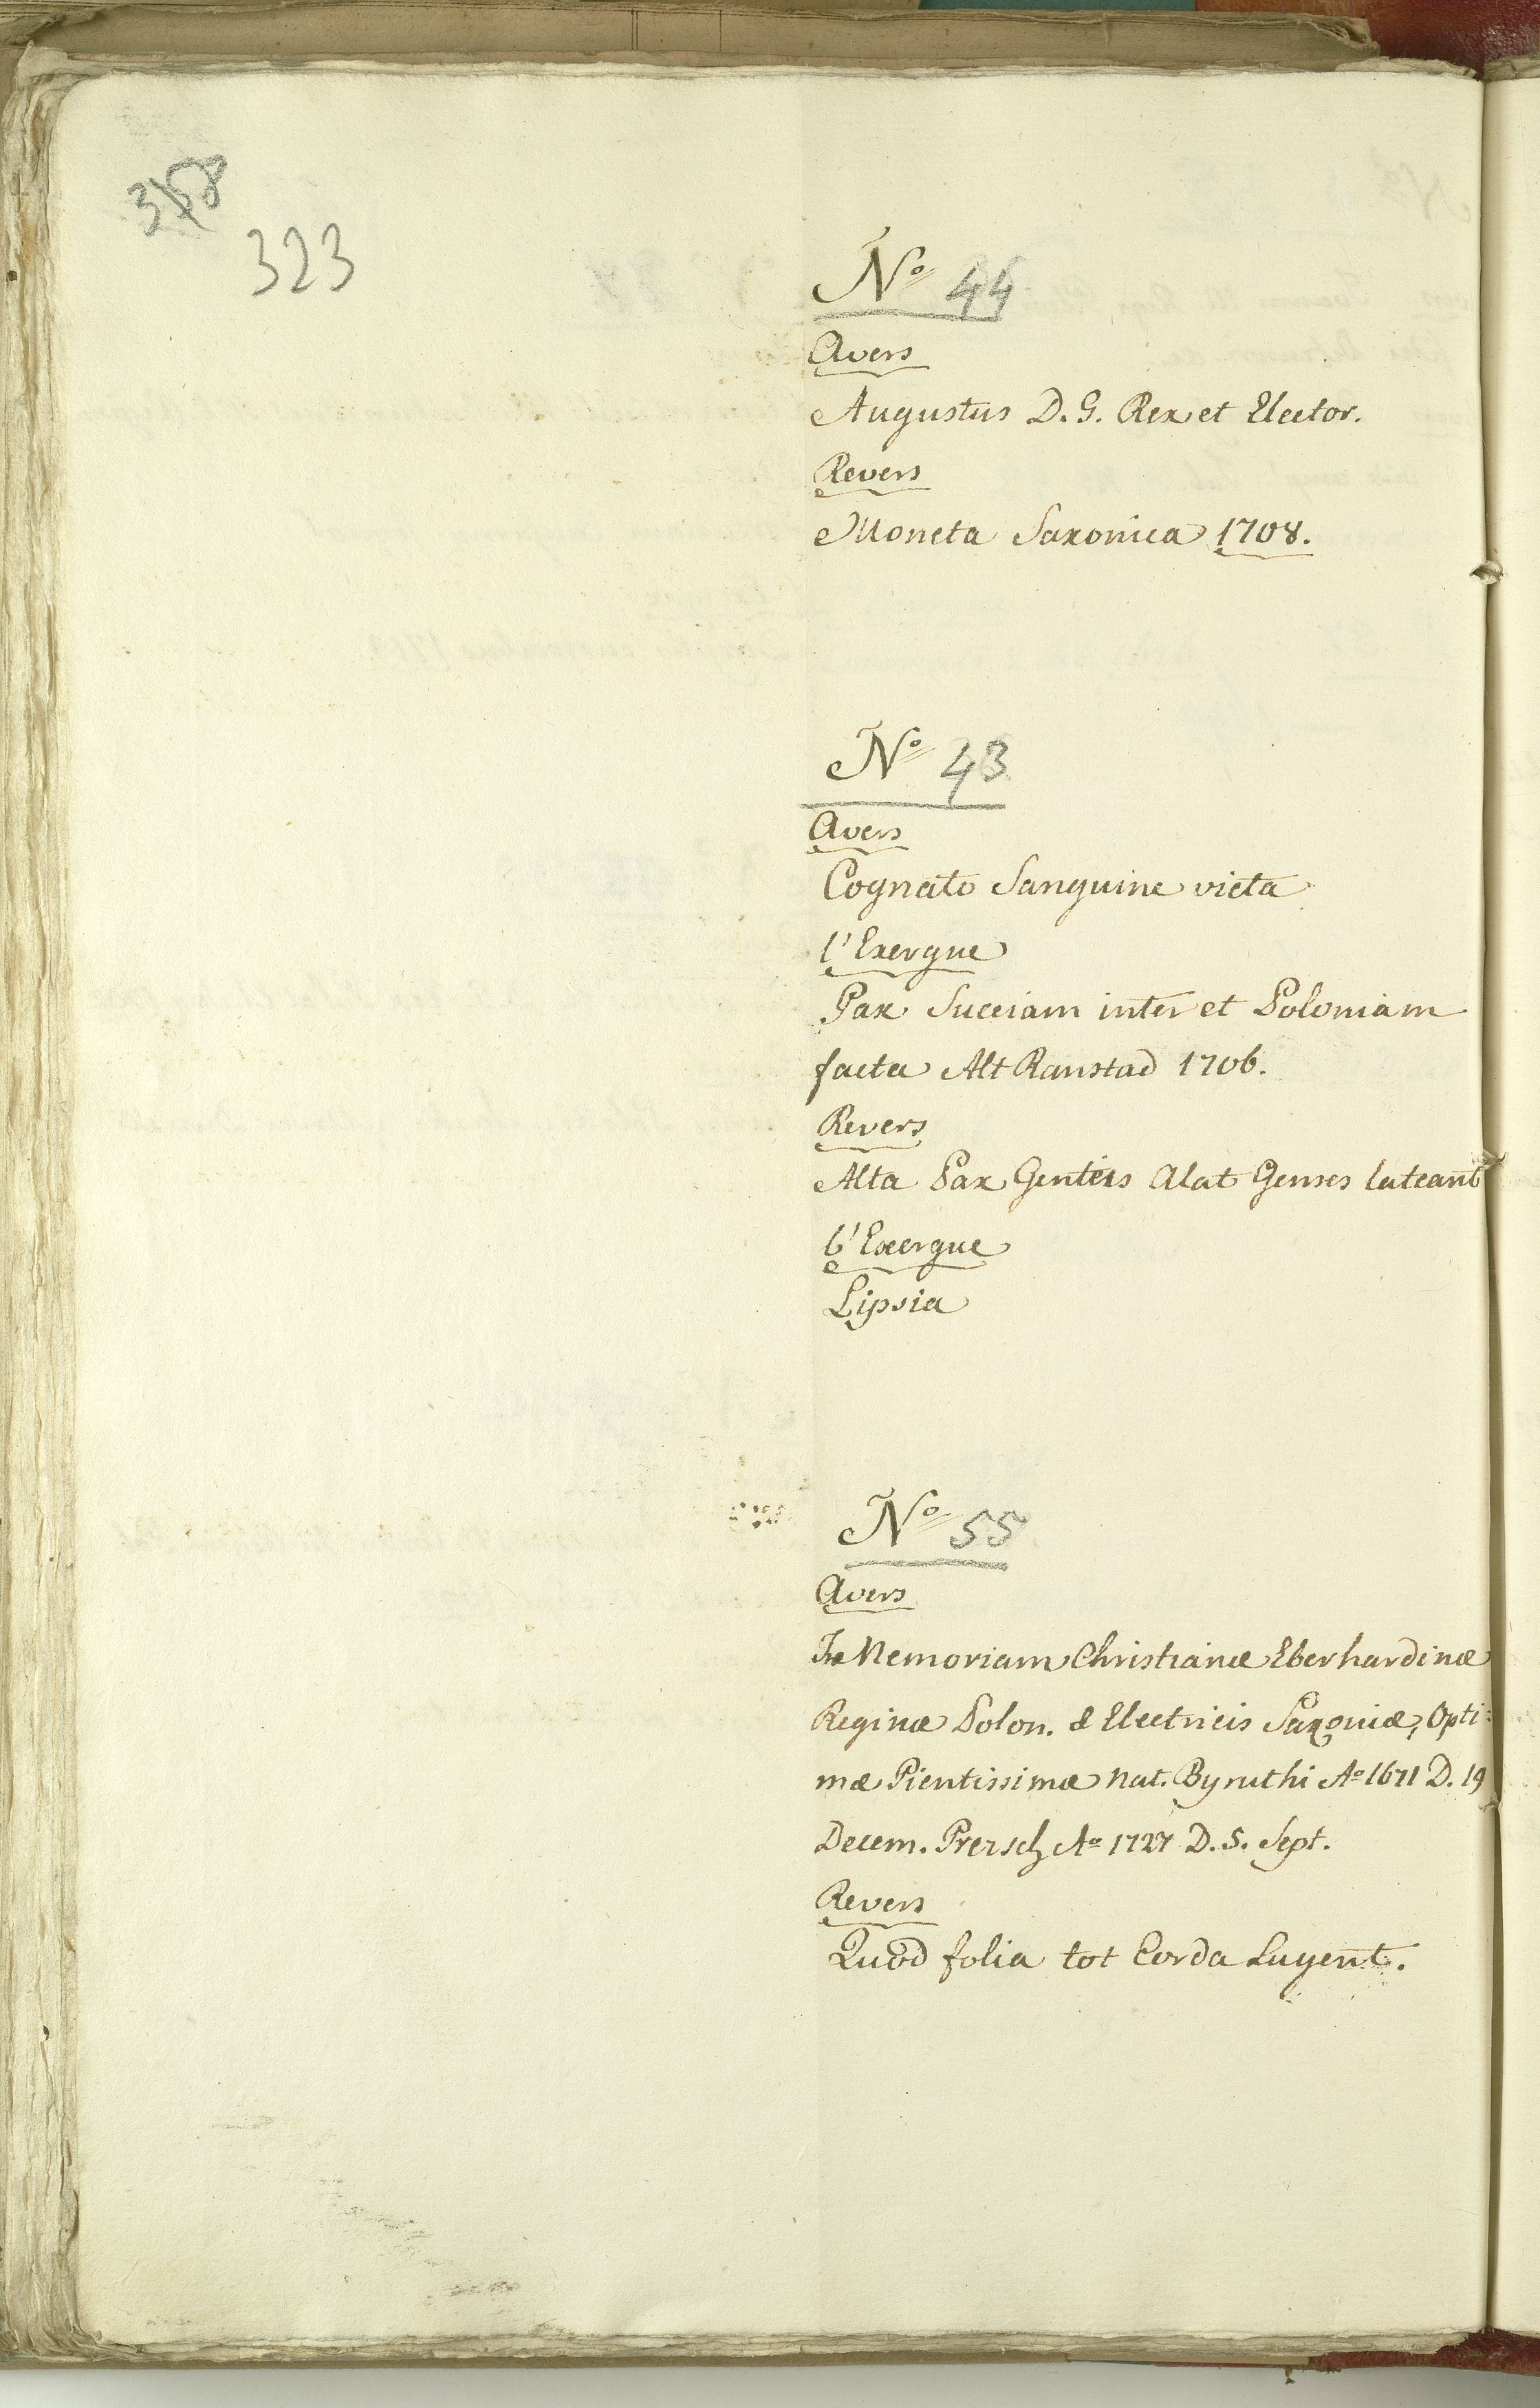 358
323
No 44
Avers
Augustus D. G. Rex et Elector.
Revers
Moneta Saxonica 1708.
No 43
Avers
Cognato Sanguine victa
l'Exergue
Pax Sueciam inter et Poloniam
facta Alt Ranstad 1706.
Revers
Alta Pax Genteis Alat Genses lateant
l'Exergue
Lipsia
No 55
Avers
In Memoriam Christianæ Eberhardinæ
Reginæ Polon. & Electricis Saxoniæ, Opti=
mæ Pientissimæ Nat. Byruthi Ao 1671 D. 19
Decem. Prersch Ao 1727 D. 5. Sept.
Revers
Quod folia tot Corda Lugent.